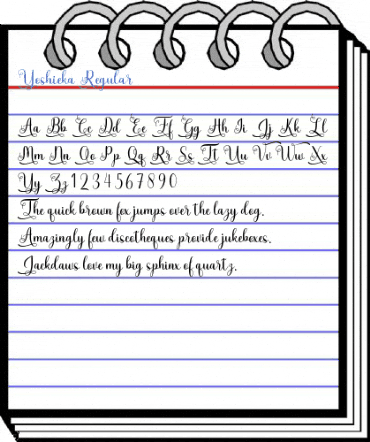 Yoshieka Regular
Aa Bb Cc Dd Ee Ff Gg Hh Ii Jj Kk Ll
Mm Nn Oo Pp Qq Rr Ss Tt Uu Vv Ww Xx
Yy Zz 1 2 3 4 5 6 7 8 9 0
The quick brown fox jumps over the lazy dog.
Amazingly few discotheques provide jukeboxes.
Jackdaws love my big sphinx of quartz.